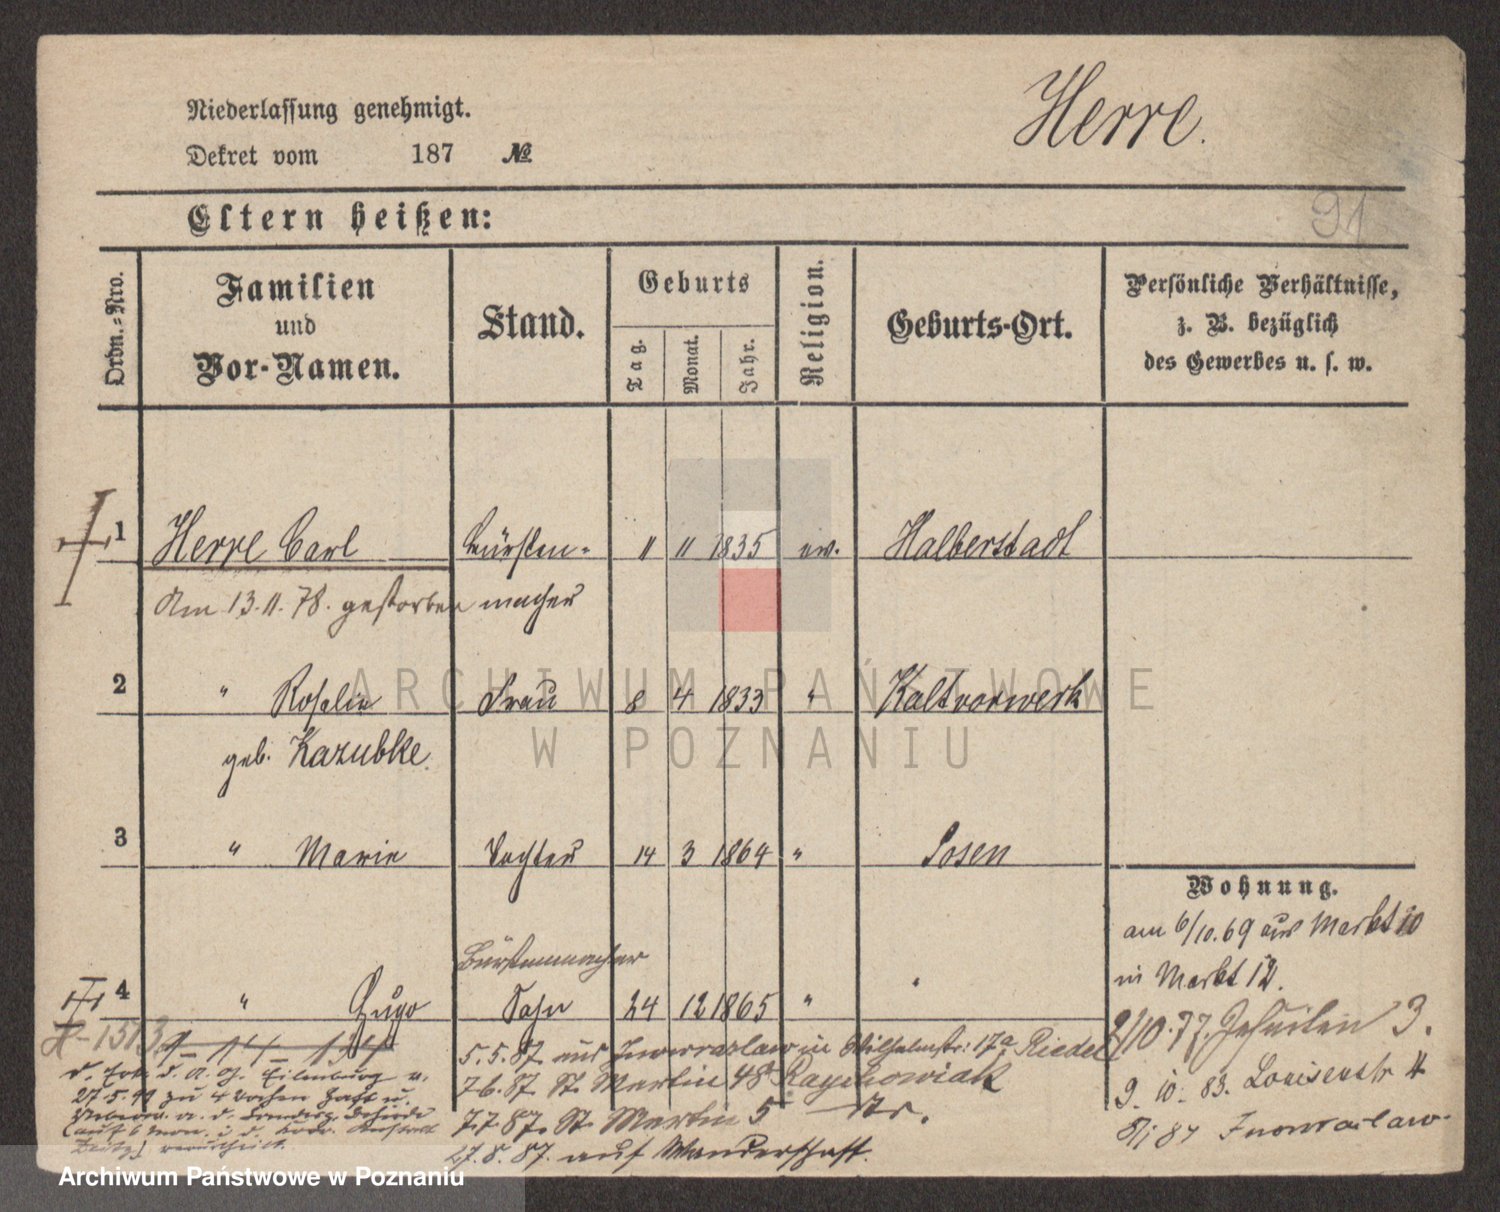 Niederlassung genehmigt.
Herre.
Dekret vom 187 №
91
Eltern heißen:
Ordn.-Nro.
Familien
und
Vor-Namen.
Stand.
Geburts
Tag.
Monat.
Jahr.
Religion.
Geburts-Ort.
Persönliche Verhältnisse,
z. B. bezüglich
des Gewerbes u. s. w.
1 Herre Carl Bürsten- 11 11 1835 ev. Halberstadt
Am 13.11.78. gestorben macher
2 " Rosalie Frau 8 4 1833 " Kaltvorwerk
geb. Kazubke.
3 " Marie Tochter 14 3 1864 " Posen
Wohnung.
am 6/10.69 aus Markt 10
in Markt 12.
Bürstenmacher
4 " Hugo Sohn 24 12 1865 " "
2/10.77. Jesuiten 3.
9. 10. 83. Louisenstr
87 Inowraclaw
5.5.87. aus Inowraclaw in Wilhelmstr: 17a Riedel
7.6.87. St. Martin 48 Raychowiak
7.7.87. St. Martin 5
27.8.87. auf Wanderschaft.
Eilenburg
zu 4 Wochen Haft u.
ARCHIWUM PAŃSTWOWE
W POZNANIU
Archiwum Państwowe w Poznaniu